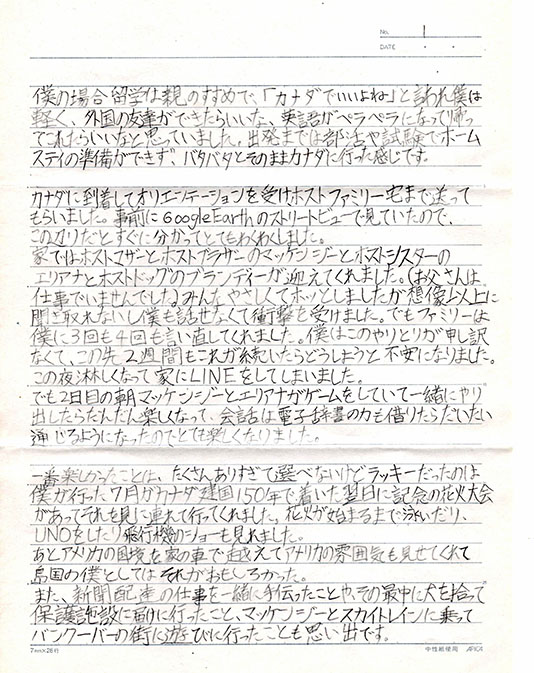 No. 1
DATE ・ ・
僕の場合留学は親のすすめで、「カナダでいいよね」と言われ僕は
軽く、外国の友達ができたらいいな、英語がペラペラになって帰っ
てこれたらいいなと思っていました。出発までは部活や試験でホーム
ステイの準備ができず、バタバタとそのままカナダに行った感じです。
カナダに到着してオリエンテーションを受けホストファミリー宅まで送って
もらいました。事前にGoogleEarthのストリートビューで見ていたので、
この辺りだとすぐに分かってとてもわくわくしました。
家ではホストマザーとホストブラザーのマッケンジーとホストシスターの
エリアナとホストドッグのブランディーが迎えてくれました。(お父さんは
仕事でいませんでした)みんなやさしくてホッとしましたが想像以上に
聞き取れないし僕も話せなくて衝撃を受けました。でもファミリーは
僕に3回も4回も言い直してくれました。僕はこのやりとりが申し訳
なくて、この先2週間もこれが続いたらどうしようと不安になりました。
この夜淋しくなって家にLINEをしてしまいました。
でも2日目の朝マッケンジーとエリアナがゲームをしていて一緒にやり
出したらだんだん楽しくなって、会話は電子辞書の力も借りたらだいたい
通じるようになったのでとても楽しくなりました。
一番楽しかったことは、たくさんありすぎて選べないけどラッキーだったのは
僕が行った7月がカナダ建国150年で着いた翌日に記念の花火大会
があってそれを見に連れて行ってくれました。花火が始まるまで泳いだり、
UNOをしたり飛行機のショーも見れました。
あとアメリカの国境を家の車で越えてアメリカの雰囲気も見せてくれて
島国の僕としてはそれがおもしろかった。
また、新聞配達の仕事を一緒に手伝ったことや、その最中に犬を拾って
保護施設に届けに行ったこと、マッケンジーとスカイトレインに乗って
バンクーバーの街に遊びに行ったことも思い出です。
7mm×26行 中性紙使用 APICA